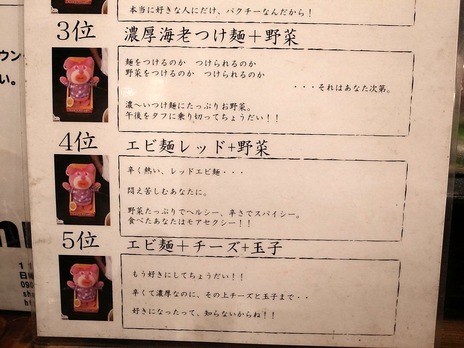 本当に好きな人にだけ、パクチーなんだから！
3位 濃厚海老つけ麺＋野菜
麺をつけるのか　つけられるのか
野菜をつけるのか　つけられるのか
・・・それはあなた次第。
濃〜いつけ麺にたっぷりお野菜。
午後をタフに乗り切ってちょうだい！！
4位 エビ麺レッド+野菜
辛く熱い、レッドエビ麺・・・
悶え苦しむあなたに。
野菜たっぷりでヘルシー、辛さでスパイシー。
食べたあなたはモアセクシー！！
5位 エビ麺＋チーズ+玉子
もう好きにしてちょうだい！！
辛くて濃厚なのに、その上チーズと玉子まで・・
好きになったって、知らないからね！！
ウン
い。
090